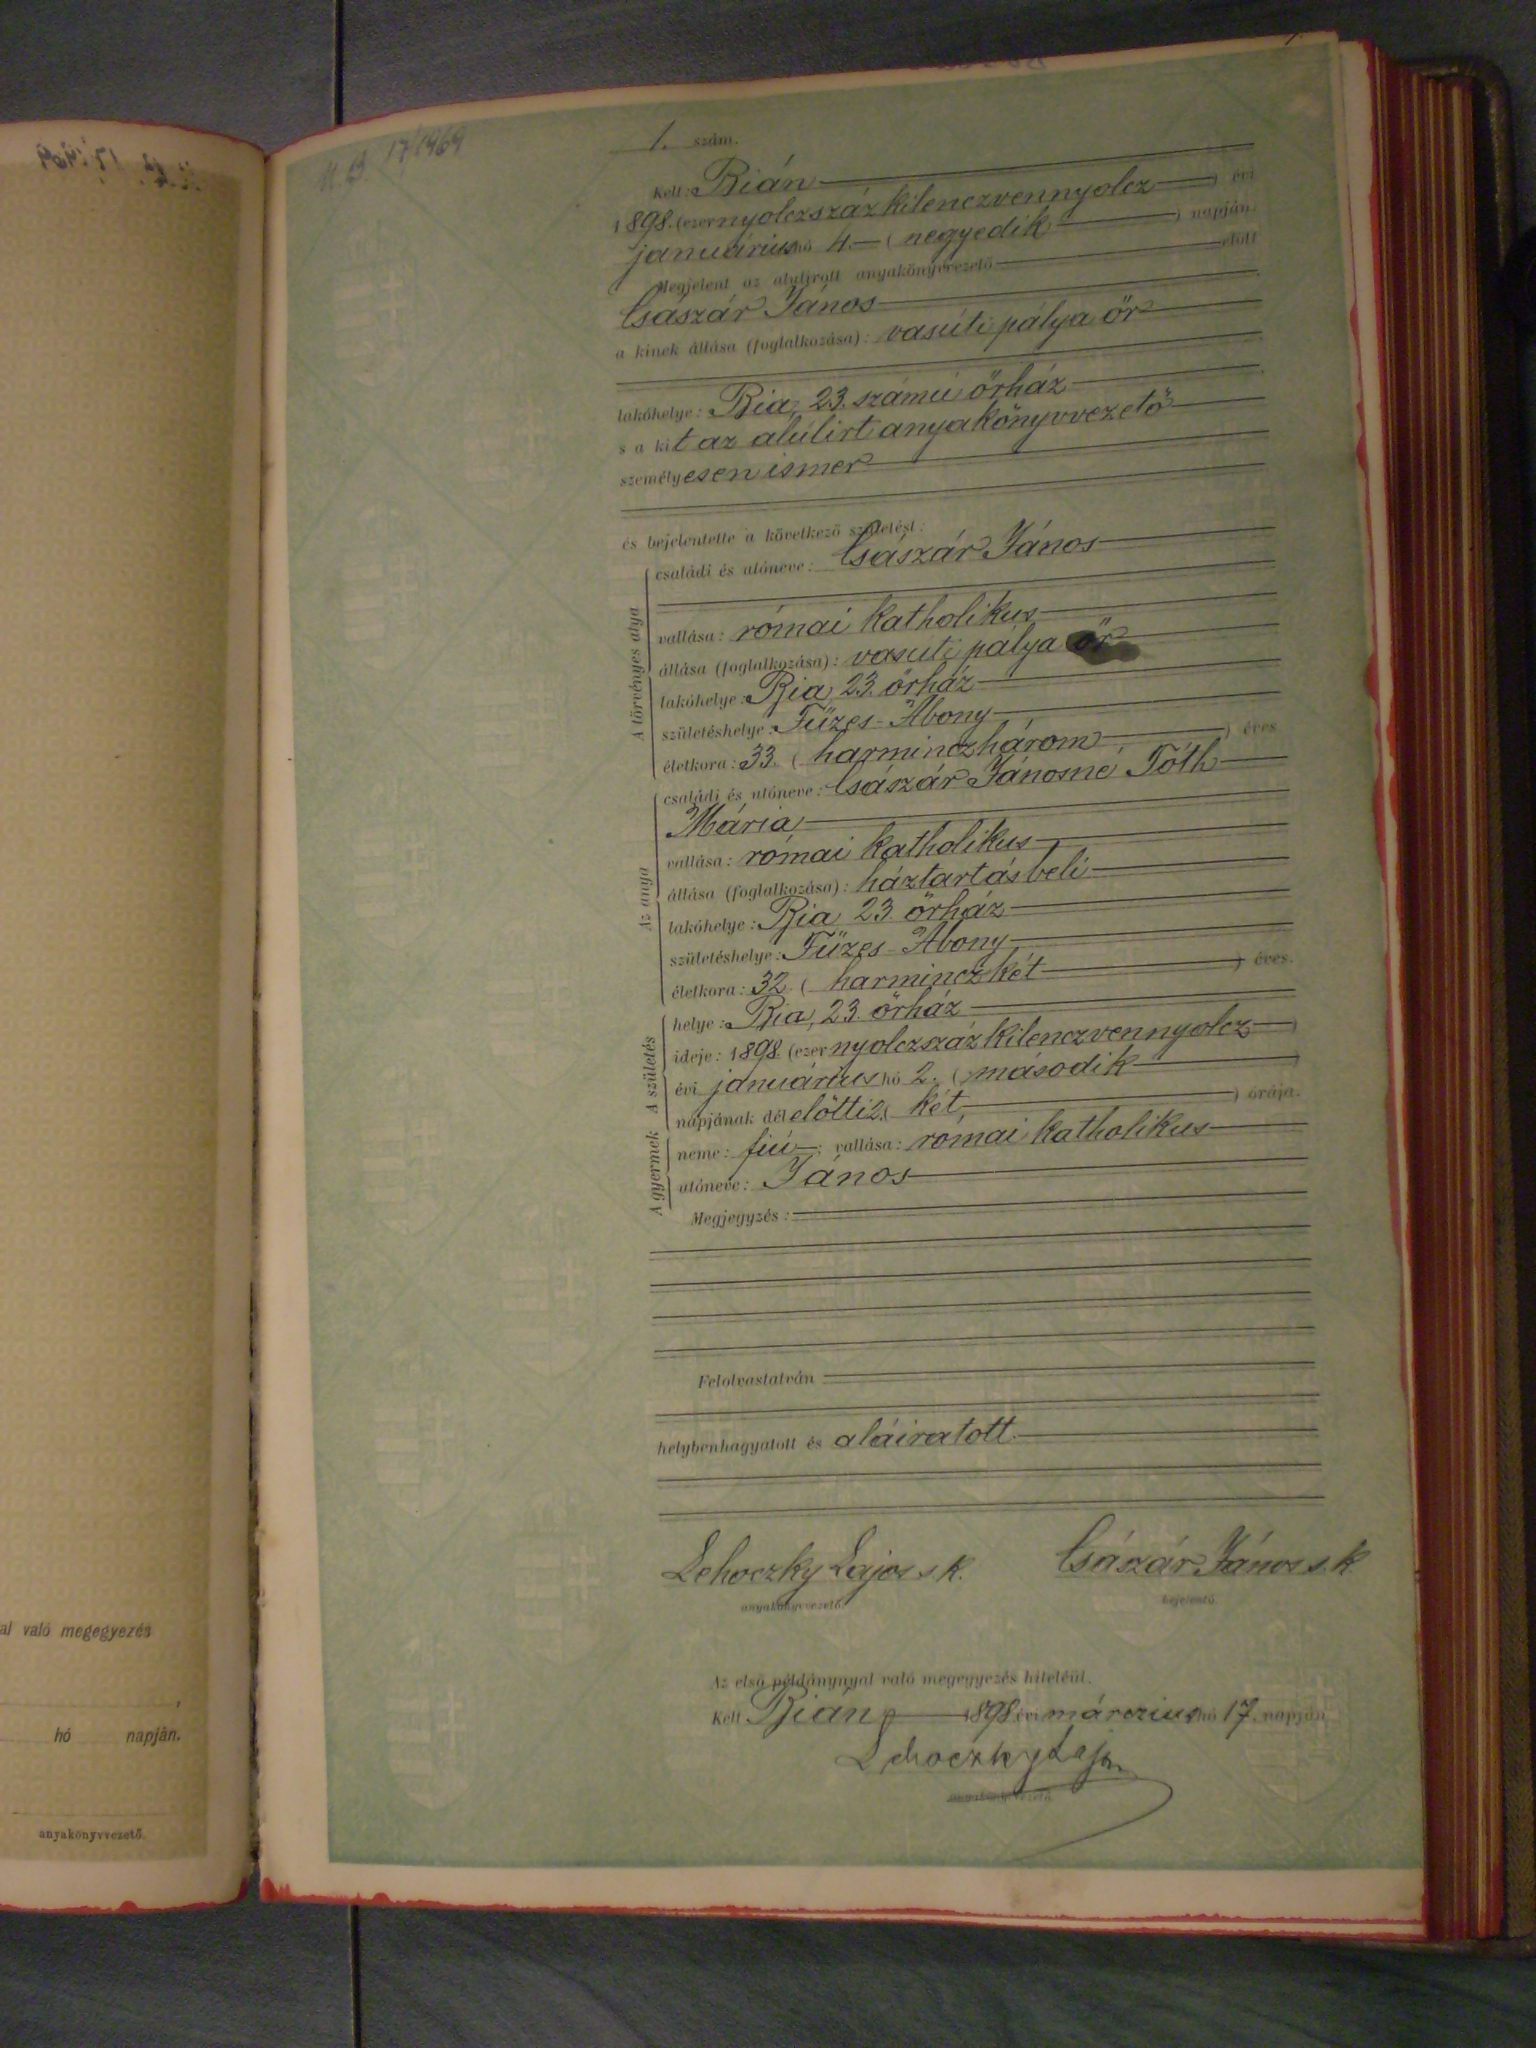 17/1969
1. szám.
Kelt: Bián
1898. (ezernyolczszázkilenczvennyolcz) évi
januárius hó 4. (negyedik) napján.
Megjelent az alulirott anyakönyvvezető előtt
Császár János
a kinek állása (foglalkozása): vasúti pálya őr
lakóhelye: Bia, 23. számú őrház
s a kit az alúlirt anyakönyvvezető
személyesen ismer
és bejelentette a következő születést:
A törvényes atya
családi és utóneve: Császár János
vallása: római katholikus
állása (foglalkozása): vasuti pálya őr
lakóhelye: Bia, 23. őrház
születéshelye: Füzes-Abony
életkora: 33. (harminczhárom) éves
Az anya
családi és utóneve: Császár Jánosné Tóth
Mária
vallása: római katholikus
állása (foglalkozása): háztartásbeli
lakóhelye: Bia 23 őrház
születéshelye: Füzes-Abony
életkora: 32. (harminczkét) éves.
A születés
helye: Bia, 23. őrház
ideje: 1898. (ezernyolczszázkilenczvennyolcz)
évi januárius hó 2. (második)
napjának délelőtti 2. (két) órája.
A gyermek
neme: fiú; vallása: római katholikus
utóneve: János
Megjegyzés:
Felolvastatván
helybenhagyatott és aláiratott.
Lehoczky Lajos s k. Császár János s. k.
anyakönyvvezető. bejelentő.
Az első példánynyal való megegyezés hiteléül.
Kelt Bián, 1898. évi márczius hó 17. napján
Lehoczky Lajos
anyakönyvvezető.
al való megegyezés
hó napján.
anyakönyvvezető.